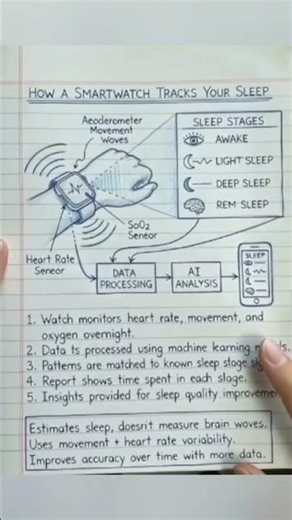 HOW A SMARTWATCH TRACKS YOUR SLEEP
Aecderometer
Movement
Woves
SLEEP STAGES
AWAKE
LIGHT SLEEP
DEEP SLEEP
REM SLEEP
SoO2
Seneor
Heart Rate
Seneor
DATA
PROCESSING
AI
ANALYSIS
SLEEP
1. Watch monitors heart rate, movement, and
oxygen overnight.
2. Data ts processed using machine karning
3. Patterns are matched to known sleep stage
4. Report shows time spent in each stage.
5. Insights provided for sleep quality improvemen
Estimates sleep, doesrit measure brain woves.
Uses movement + heart rate voriability.
Improves accuracy over time with more data.